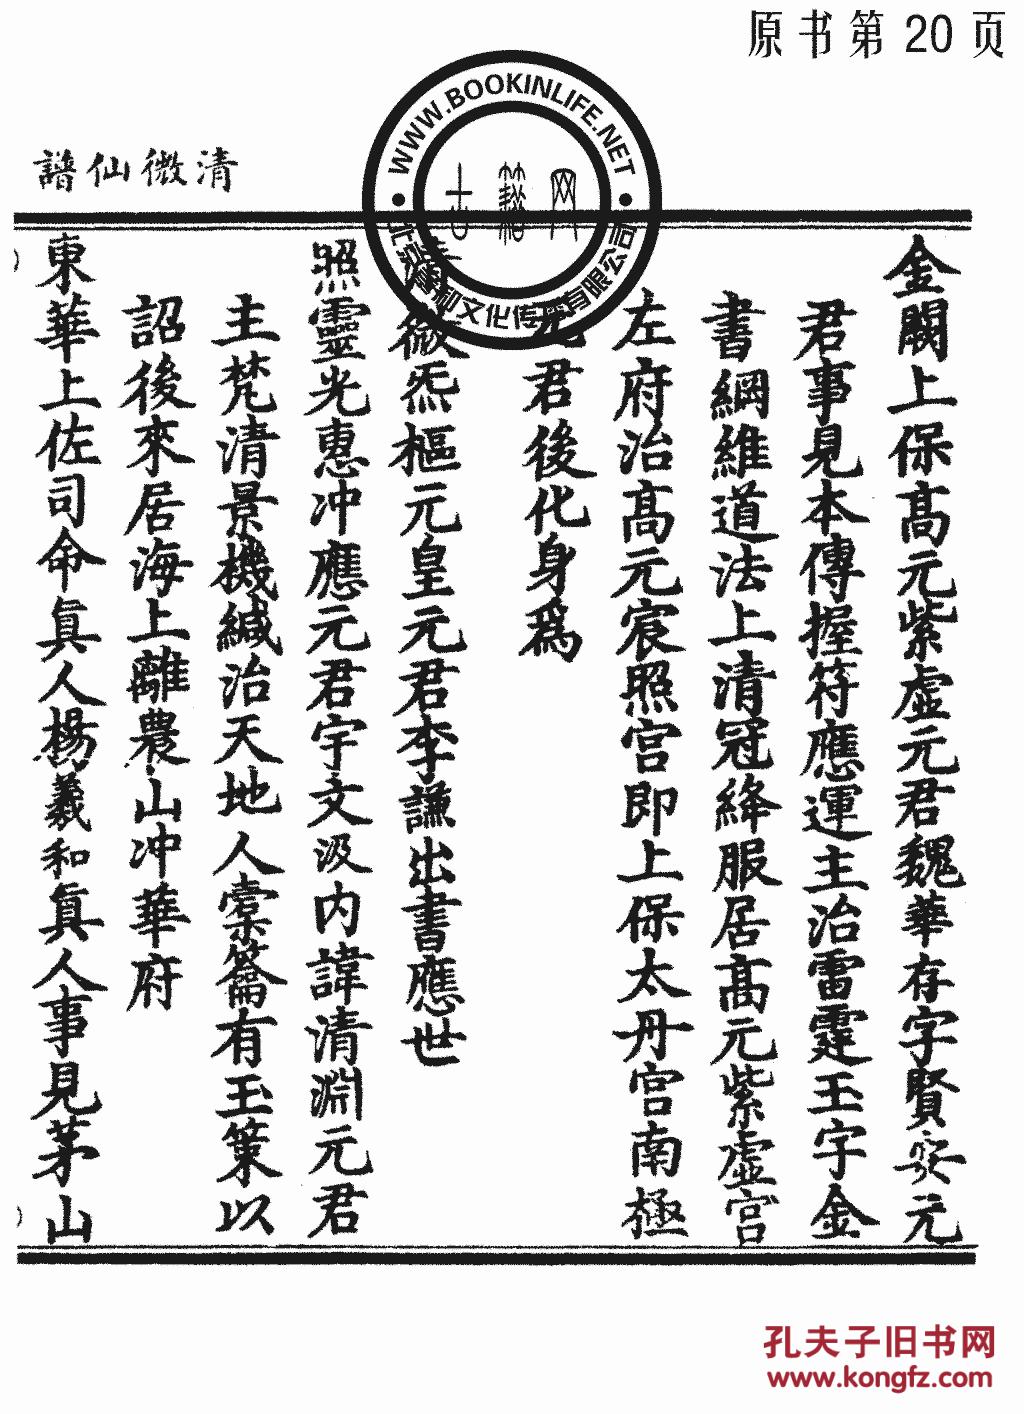 原书第20页
清微仙譜
WWW.BOOKINLIFE.NET
金闕上保高元紫虛元君魏華存字賢安元
君事見本傳握符應運主治雷霆王宇金
書綱維道法上清冠絳服居高元紫虛宮
左府治高元宸照宮即上保太丹宮南極
元君後化身爲
清微炁樞元皇元君李謙出書應世
照靈光惠冲應元君宇文汲内諱清淵元君
主梵清景機緘治天地人棠籥有玉策以
詔後來居海上離農山冲華府
東華上佐司命真人楊羲和真人事見茅山
孔夫子旧书网
www.kongfz.com